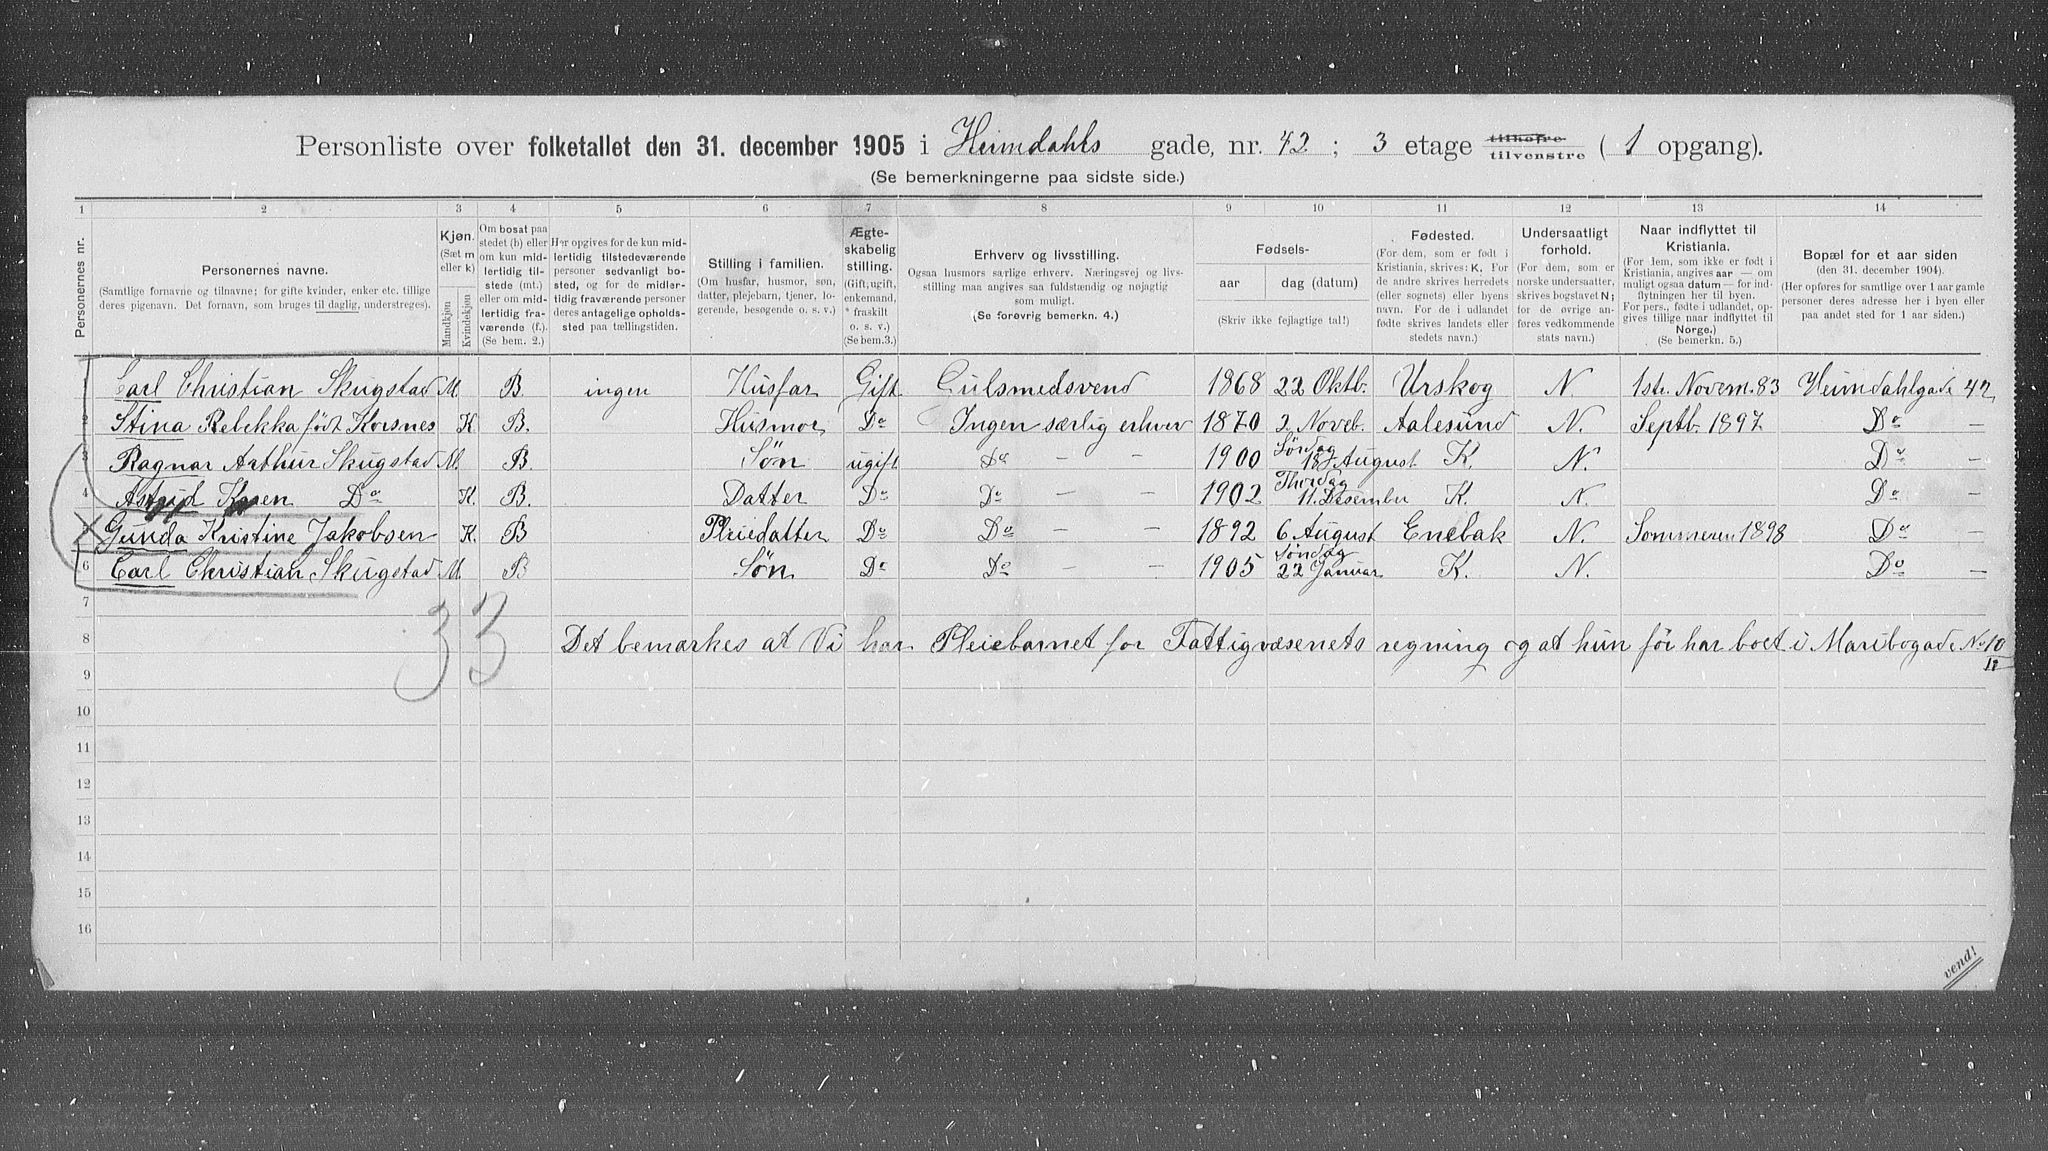 Personliste over folketallet den 31. december 1905 i Heimdahls gade, nr. 42 ; 3 etage tilhøire tilvenstre ( 1 opgang).
(Se bemerkningerne paa sidste side.)
1 2 3 4 5 6 7 8 9 10 11 12 13 14
Personernes nr.
Personernes navne.
(Samtlige fornavne og tilnavne; for gifte kvinder, enker etc. tillige deres pigenavn. Det fornavn, som bruges til daglig, understreges).
Kjøn.
(Sæt m eller k)
Mandkjøn
Kvindekjøn
Om bosat paa stedet (b) eller om kun midlertidig tilstede (mt.) eller om midlertidig fraværende (f.). (Se bem. 2.)
Her opgives for de kun midlertidig tilstedeværende personer sedvanlig bosted, og for de midlertidig fraværende personer deres antagelige opholdssted paa tællingstiden.
Stilling i familien.
(Om husfar, husmor, søn, datter, plejebarn, tjener, logerende, besøgende o. s. v.)
Ægteskabelig stilling.
(Gift, ugift, enkemand, * fraskilt o. s. v.) (Se bem.3.)
Erhverv og livsstilling.
Ogsaa husmors særlige erhverv. Næringsvej og livsstilling maa angives saa fuldstændig og nøjagtig som muligt.
(Se forøvrig bemerkn. 4.)
Fødsels-
aar
dag (datum)
(Skriv ikke fejlagtige tal!)
Fødested.
(For dem, som er født i Kristiania, skrives: K. For de andre skrives herredets (eller sognets) eller byens navn. For de i udlandet fødte skrives landets eller stedets navn.)
Undersaatligt forhold.
(For dem, som er norske undersaatter, skrives bogstavet N; for de øvrige anføres vedkommende stats navn.)
Naar indflyttet til Kristiania.
(For dem, som ikke er født i Kristiania, angives aar — om muligt ogsaa datum — for indflytningen her til byen. For pers., fødte i udlandet, opgives tillige naar indflyttet til Norge.) (Se bemerkn. 5.)
Bopæl for et aar siden
(den 31. december 1904).
(Her opføres for samtlige over 1 aar gamle personer deres adresse her i byen eller paa andet sted for 1 aar siden.)
1 Carl Christian Skugstad M. B. ingen Husfar Gift Gulsmedsvend 1868 22 Oktb. Urskog N. 1ste Novem. 83 Heimdahlgade 42
2 Stina Rebekka født Korsnes K B. Husmor Do Ingen særlig erhver 1870 2 Noveb. Aalesund N. Septb. 1897 Do —
3 Ragnar Arthur Skugstad M. B. Søn ugift Do — — 1900 Søndag 18 August K. N. Do —
4 Astrid Karen Do K. B. Datter Do Do — — 1902 Thorsdag 11. Desember K. N. Do —
5 Gunda Kristine Jakobsen K. B Pleiedatter Do Do — — 1892 6 August Enebak N. Sommeren 1898 Do —
6 Carl Christian Skugstad M. B Søn Do Do — — 1905 Søndag 22 Januar K. N. Do —
7
33
8 Det bemærkes at Vi har Pleiebarnet for Fattigvæsenets regning og at hun før har boet i Maribogade No 10/12
9
10
11
12
13
14
15
16
vend!